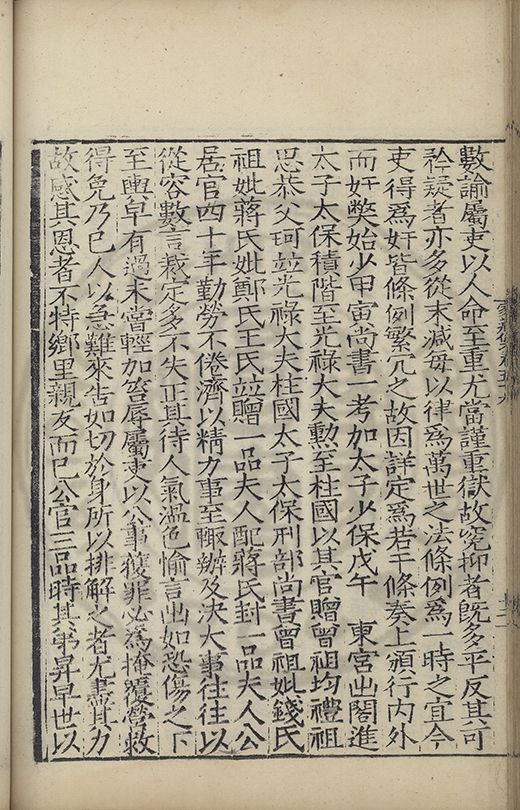 數諭屬吏以人命至重尤當謹重獄故冤抑者旣多平反其可
矜疑者亦多從末减每以律爲萬世之法條例爲一時之宜今
吏得爲奸皆條例繁冗之故因詳定爲若干條奏上頒行內外
而奸弊始少甲寅尚書一考加太子少保戊午 東宮出閤進
太子太保積階至光祿大夫勳至柱國以其官贈曾祖均禮祖
思恭父珂並光祿大夫柱國太子太保刑部尚書曾祖妣錢氏
祖妣蔣氏妣鄭氏王氏並贈一品夫人配蔣氏封一品夫人公
居官四十年勤勞不倦濟以精力事至輙辦及决大事往往以
從容數言裁定多不失正其待人氣溫色愉言出如恐傷之下
至輿皁有過未嘗輕加笞辱屬吏以公事獲罪必爲掩覆營救
得免乃已人以急難來告如切於身所以排解之者尤盡其力
故感其恩者不特鄉里親友而已公官三品時其弟昇早世以